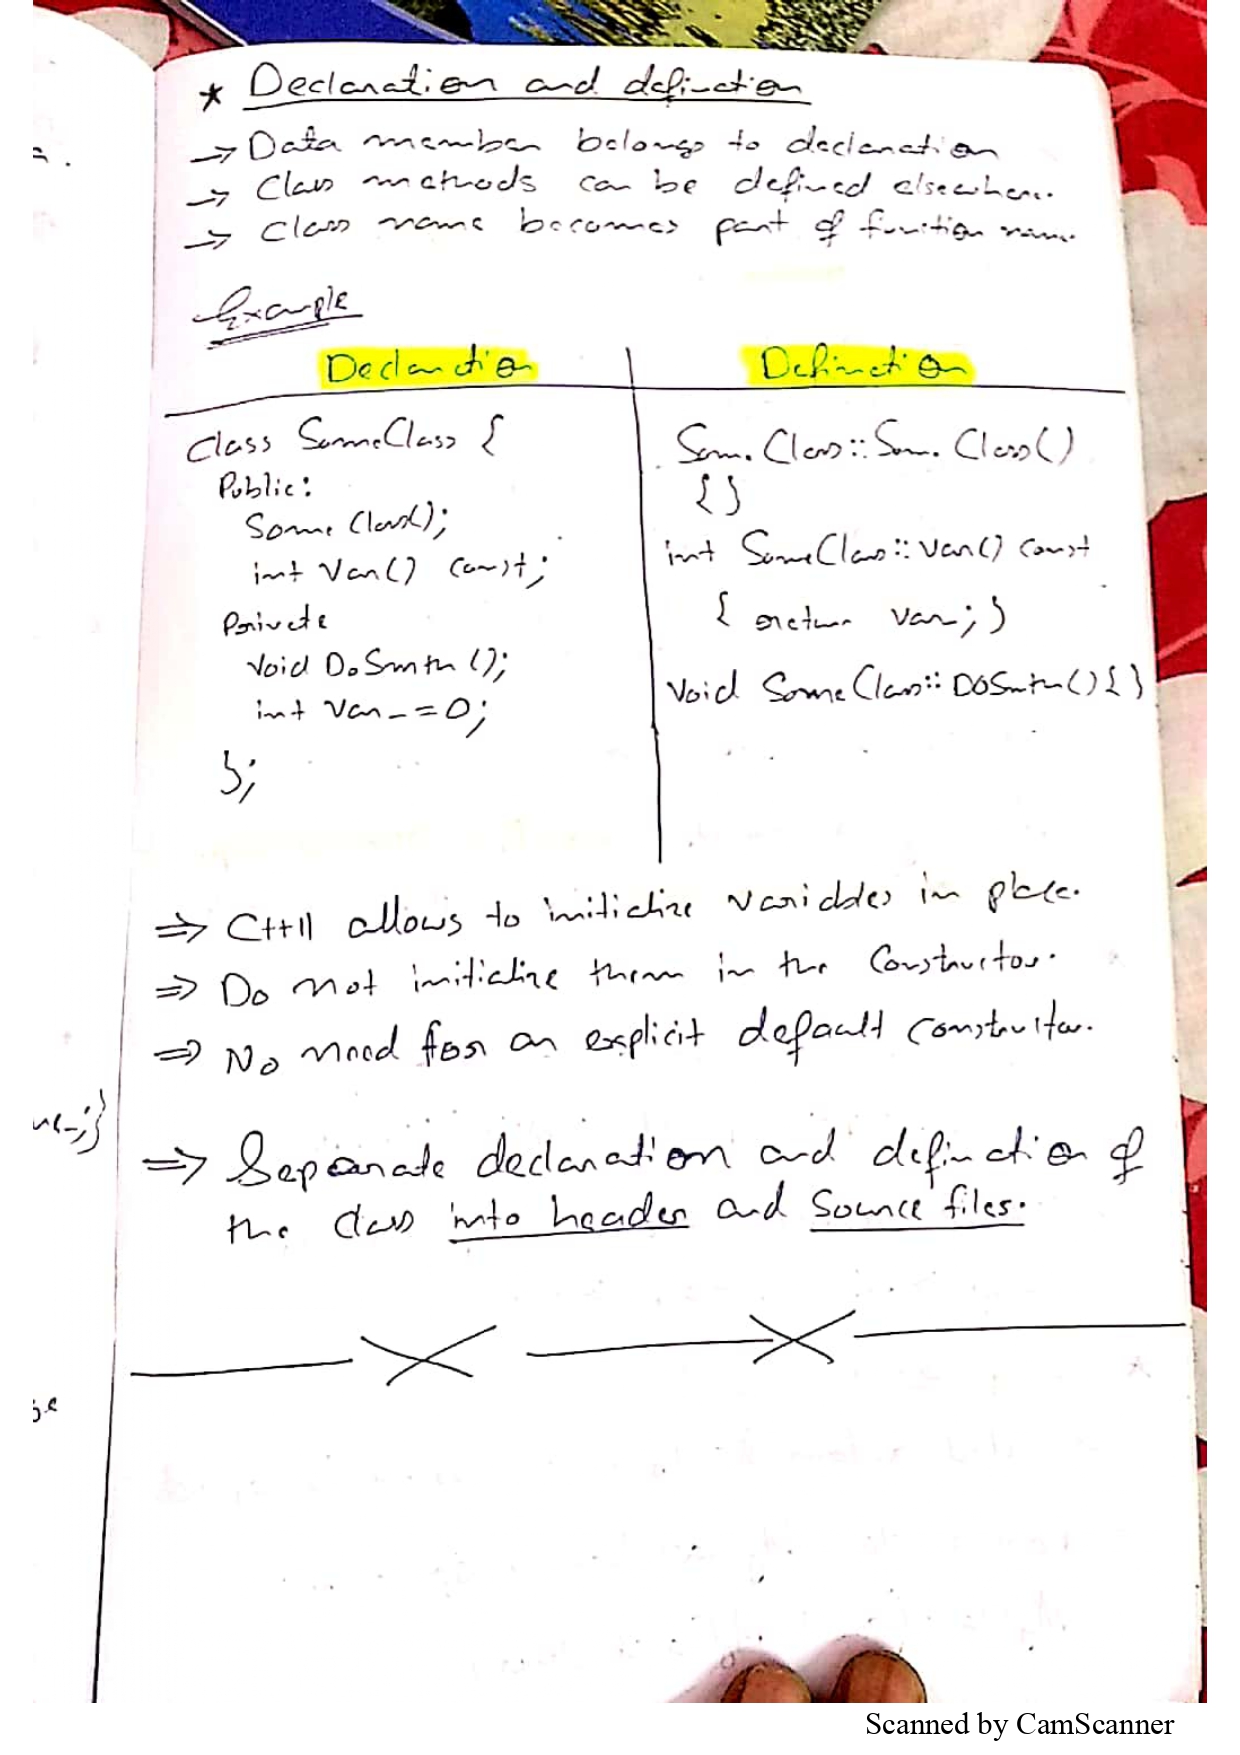 * Declaration and defination
→ Data member belongs to declaration
→ Class methods can be defined elsewhere.
→ Class name becomes part of function name.
Example
Declaration
class SomeClass {
Public:
SomeClass();
int Var() const;
Private
Void DoSmth();
int var_=0;
};
Defination
SomeClass::SomeClass()
{}
int SomeClass::Var() const
{ return var_; }
Void SomeClass::DOSmth(){}
⇒ C++11 allows to initialize variables in place.
⇒ Do not initialize them in the Constructor.
⇒ No need for an explicit default constructor.
⇒ Separate declaration and defination of
the class into header and source files.
Scanned by CamScanner